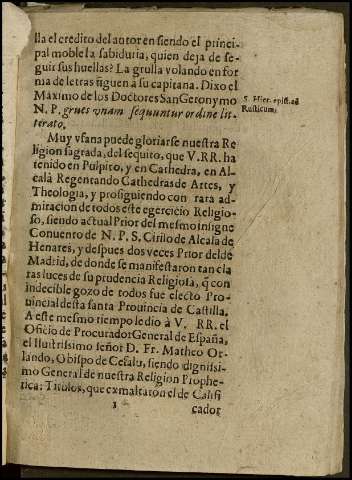 lla el credito del autor en siendo el princi-
pal moble la sabiduria, quien deja de se-
guir sus huellas? La grulla volando en for
ma de letras siguen à su capitana. Dixo el
Maximo de los Doctores San Geronymo
N. P. grues vnam sequuntur ordine lit-
terato.
S. Hier. epist. ad
Rusticum.
Muy vfana puede gloriarse nuestra Re
ligion sagrada, del sequito, que V. RR. ha
tenido en Pulpito, y en Cathedra, en Al-
calà Regentando Cathedras de Artes, y
Theologia, y prosiguiendo con rara ad-
miracion de todos este egercicio Religio-
so, siendo actual Prior del mesmo insigne
Conuento de N. P. S. Cirilo de Alcala de
Henares, y despues dos veces Prior del de
Madrid, de donde se manifestaron tan cla
ras luces de su prudencia Religiosa, q̃ con
indecible gozo de todos fue electo Pro-
uincial desta santa Prouincia de Castilla.
A este mesmo tiempo le diò à V. RR. el
Oficio de Procurador General de España,
el Ilustrissimo señor D. Fr. Matheo Or-
lando, Obispo de Cefalu, siendo dignissi-
mo General de nuestra Religion Prophe-
tica: Titulos, que exmaltaron el de Califi
3
cador